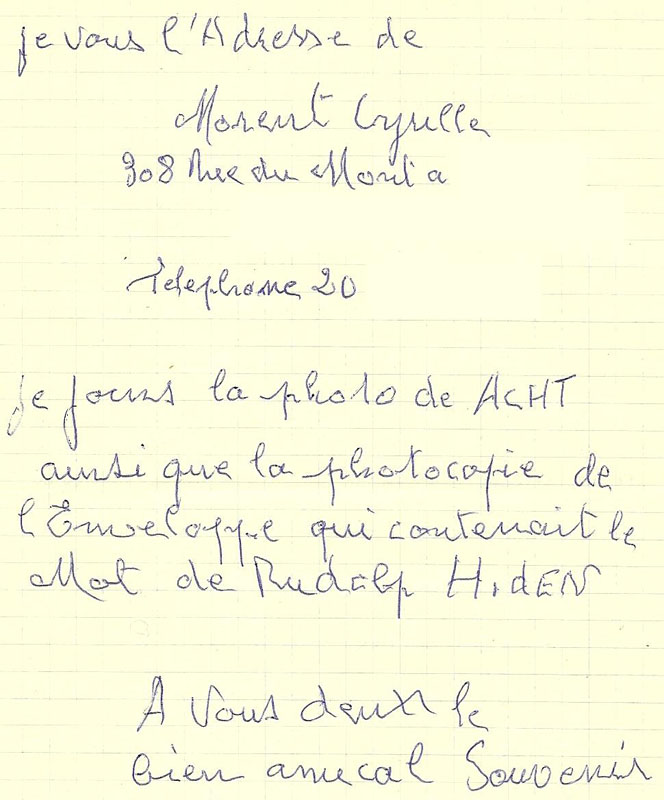 je vous l'Adresse de
Morent Cyrille
308 Rue du Mont a
Telephone 20
je joins la photo de ACHT
ainsi que la photocopie de
l'Enveloppe qui contenait le
Mot de Rudolp HidEN
A Vous deux le
bien amical Souvenir